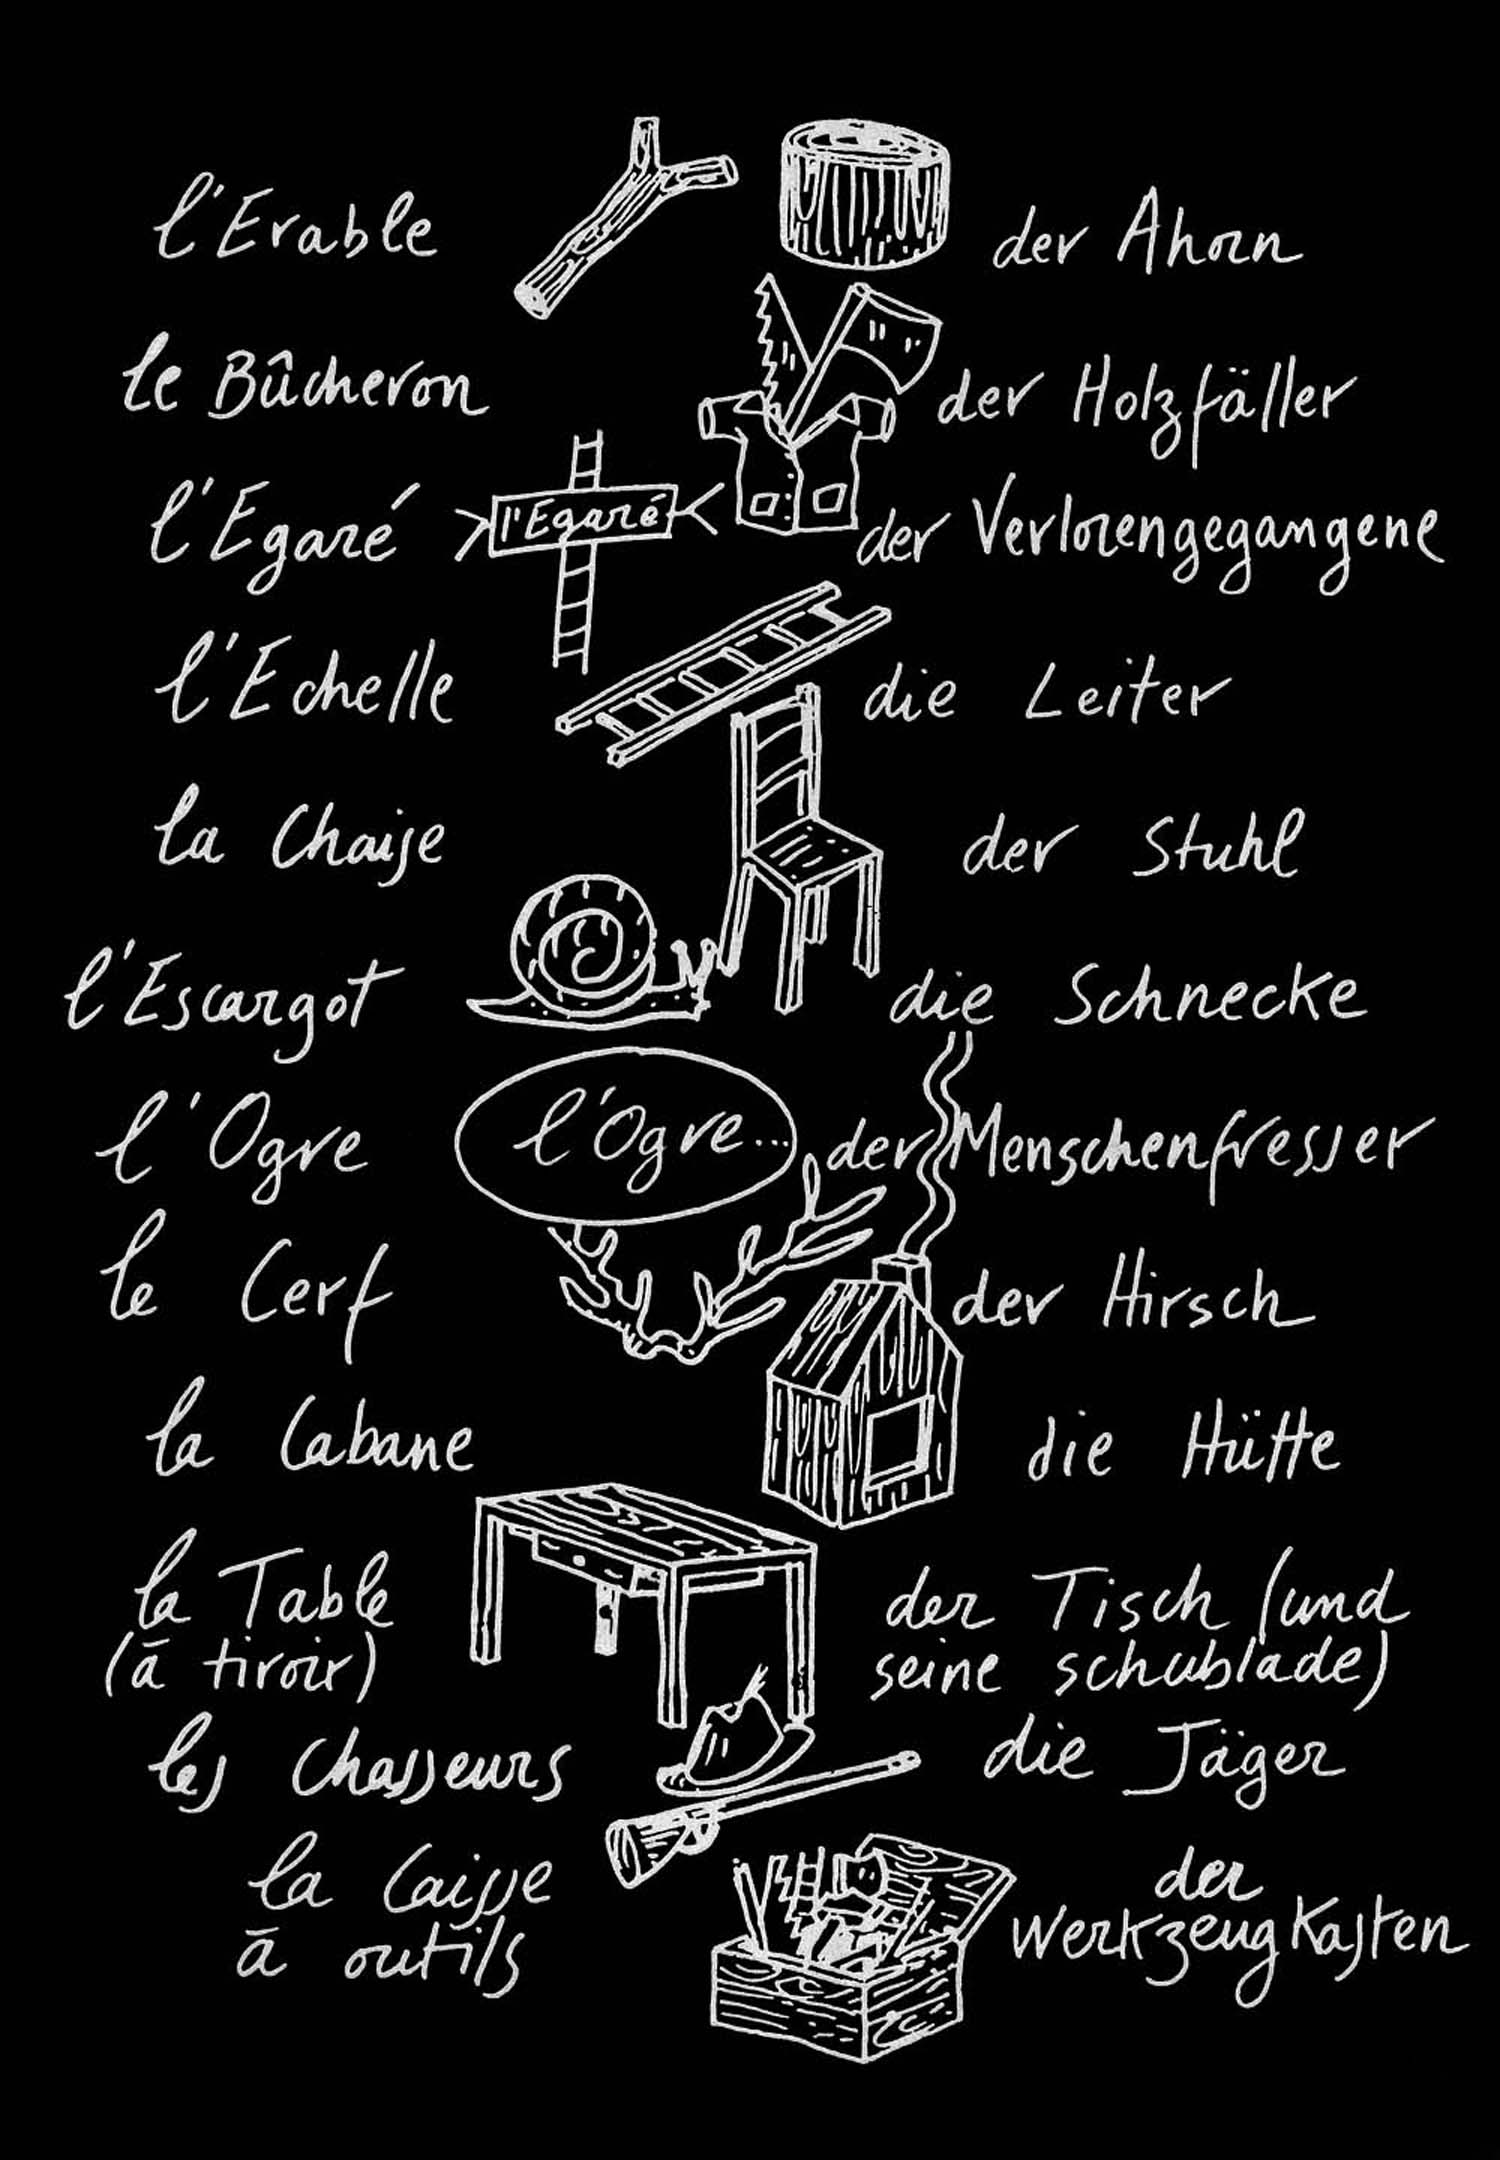 l'Erable der Ahorn
le Bûcheron der Holzfäller
l'Egaré >l'Egaré< der Verlorengegangene
l'Echelle die Leiter
la Chaise der Stuhl
l'Escargot die Schnecke
l'Ogre l'Ogre... der Menschenfresser
le Cerf der Hirsch
la Cabane die Hütte
la Table der Tisch (und
(à tiroir) seine schublade)
les Chasseurs die Jäger
la Caisse der
à outils Werkzeugkasten